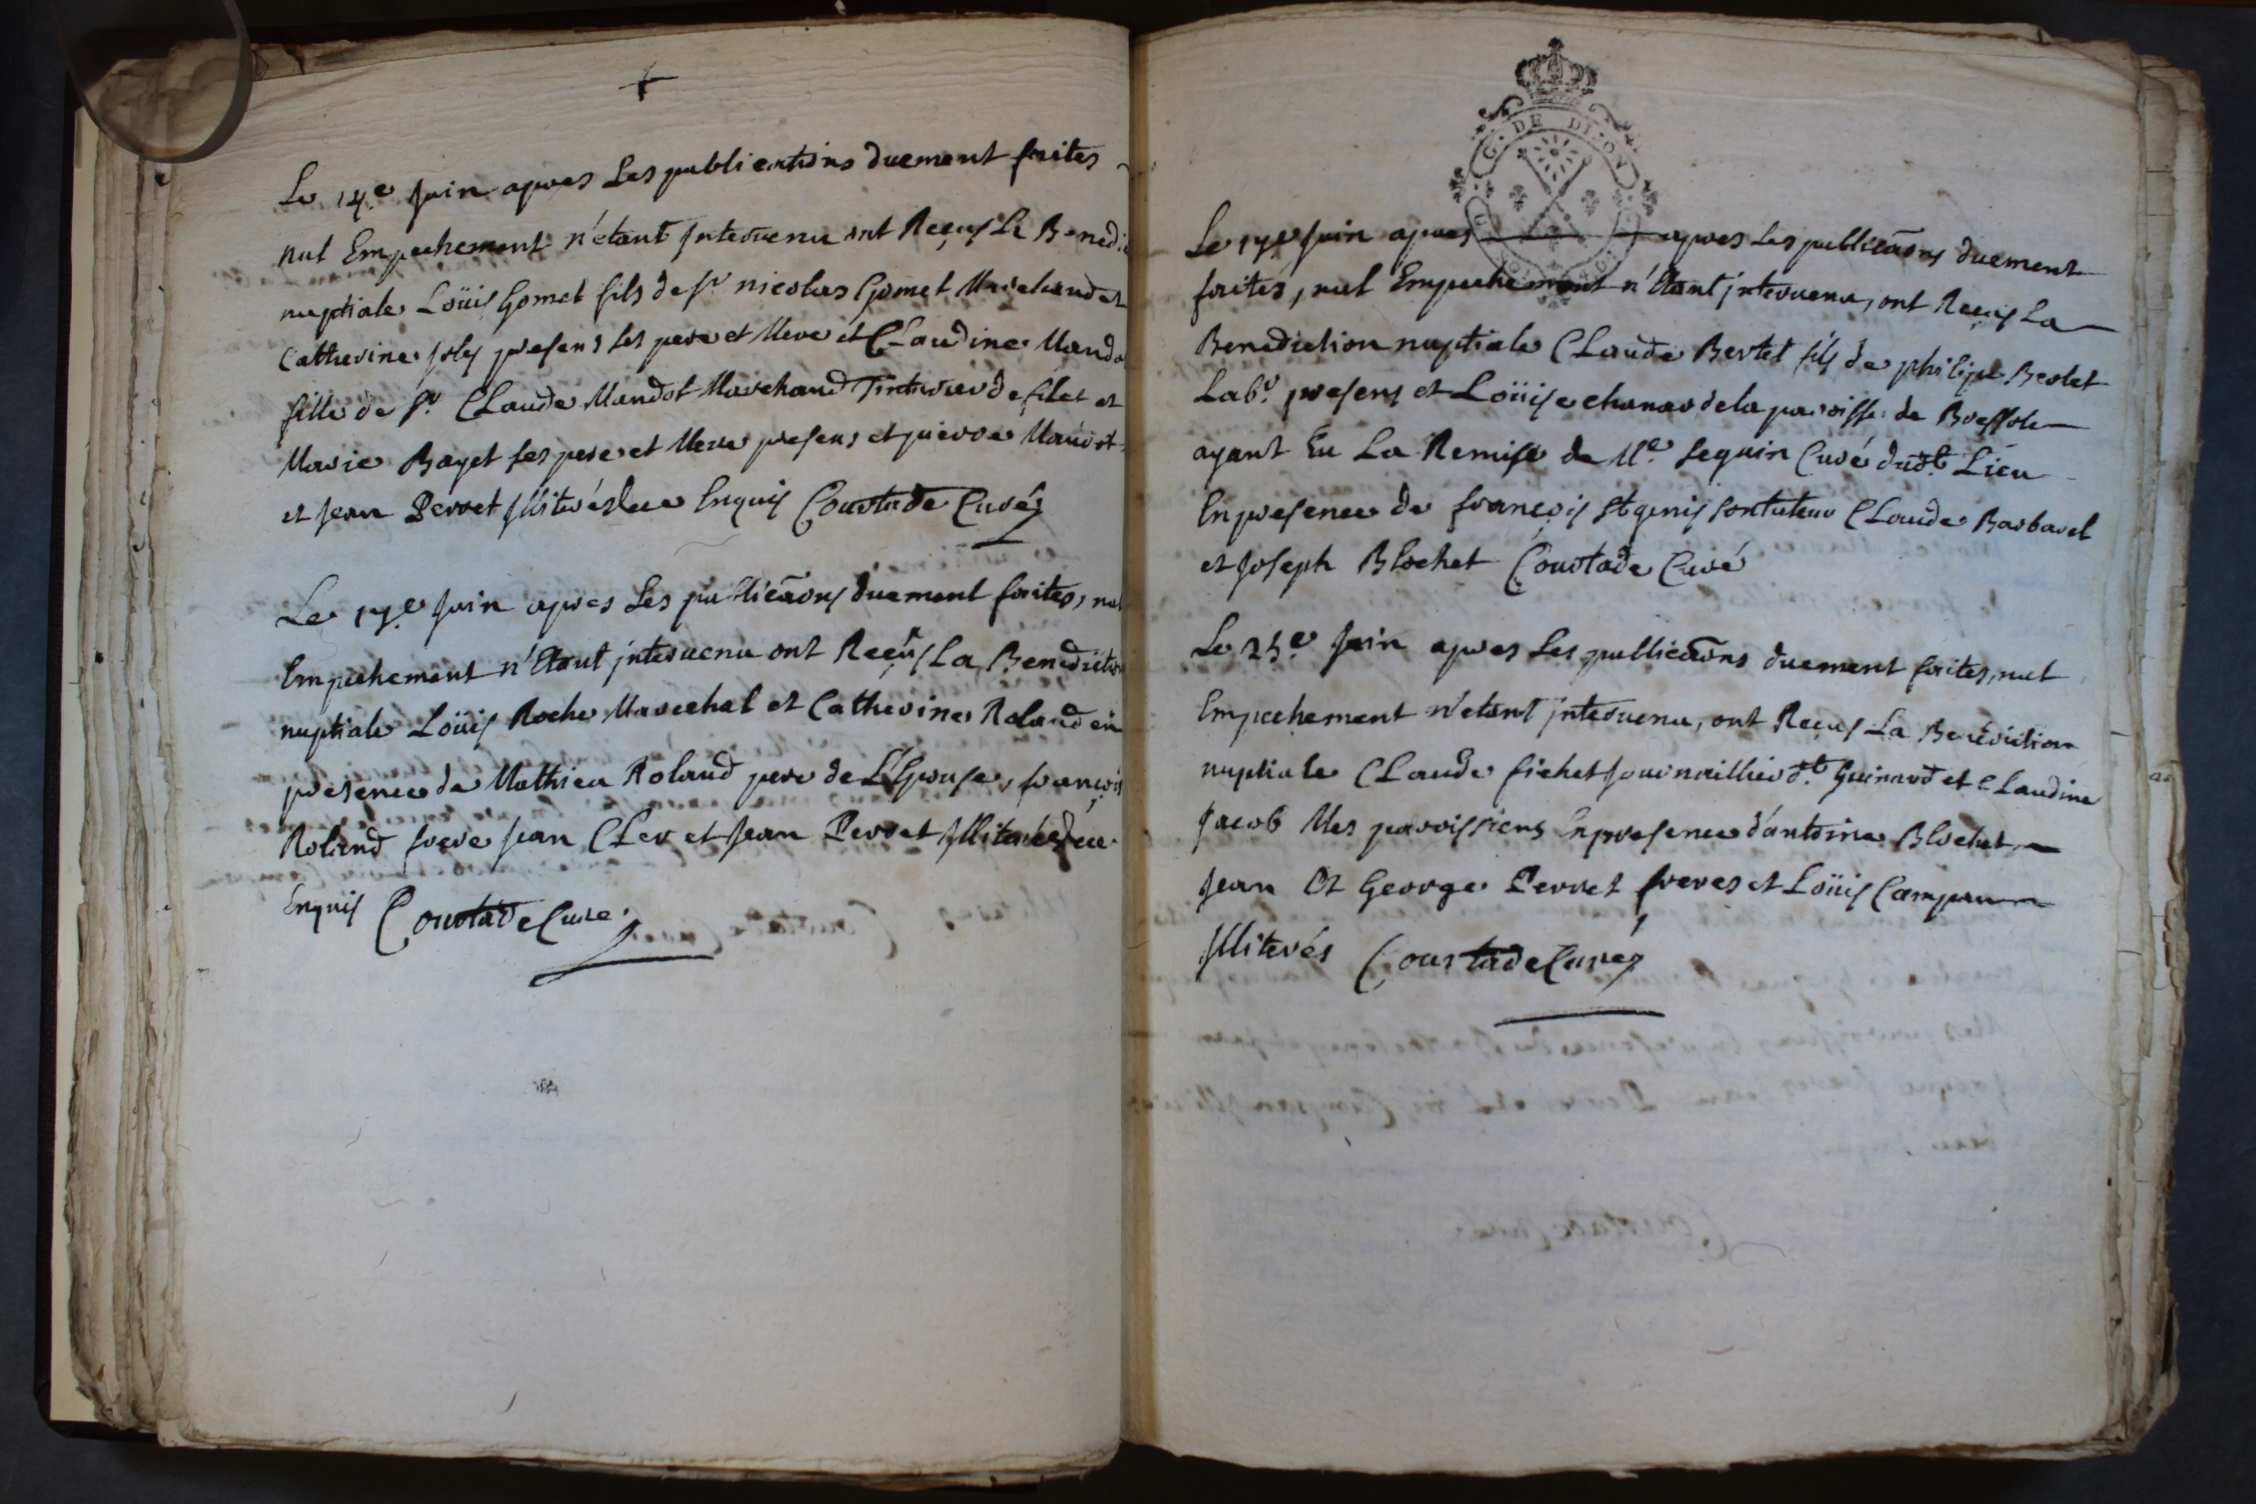 Le 14e Juin apres Les publications duement faites
nul Empechement n'etant Intervenu ont Reçus La Benedic
nuptiale Loüis Gomet fils de Sr nicolas Gomet Marchand et
Catherine Joly presens Ses pere et Mere et CLaudine Mando
fille de Sr CLaude Mandot Marchand Tinturier de filet et
Marie Bayet ses pere et Mere presens et pierre Mandot
et Jean Perret Illiterés Enquis Courtade Curé
Le 17e Juin apres Les publicãons duement faites, nul
Empechement n'Etant intervenu ont Reçus La Benediction
nuptiale Loüis Roche Marechal et Catherine Roland en
presence de Mathieu Roland pere de L'Epouse, françois
Roland frere Jean CLer et Jean Perret Illiterés
Enquis Courtade Curé
G. DE DIJON
Le 17e Juin apres apres Les publicãons duement
faites, nul Empechement n'Etant intervenu, ont Reçus La
Benediction nuptiale CLaude Bertet fils de philipe Bertet
Labr presens et Loüise chanar de la paroisse de Bressole
ayant Eu La Remise de Mre Seguin Curé dudt Lieu
En presence de françois St genis son tuteur CLaude Barbaret
et Joseph Blochet Courtade Curé
Le 25e Juin apres Les publicãons duement faites, nul
Empechement n'etant intervenu, ont Reçus La Benediction
nuptiale CLaude fichet Journaillier dt Guinard et CLaudine
Jacob Mes paroissiens En presence d'antoine Blochet,
Jean Et George Perret freres et Loüis Campan
Illiterés Courtade Curé